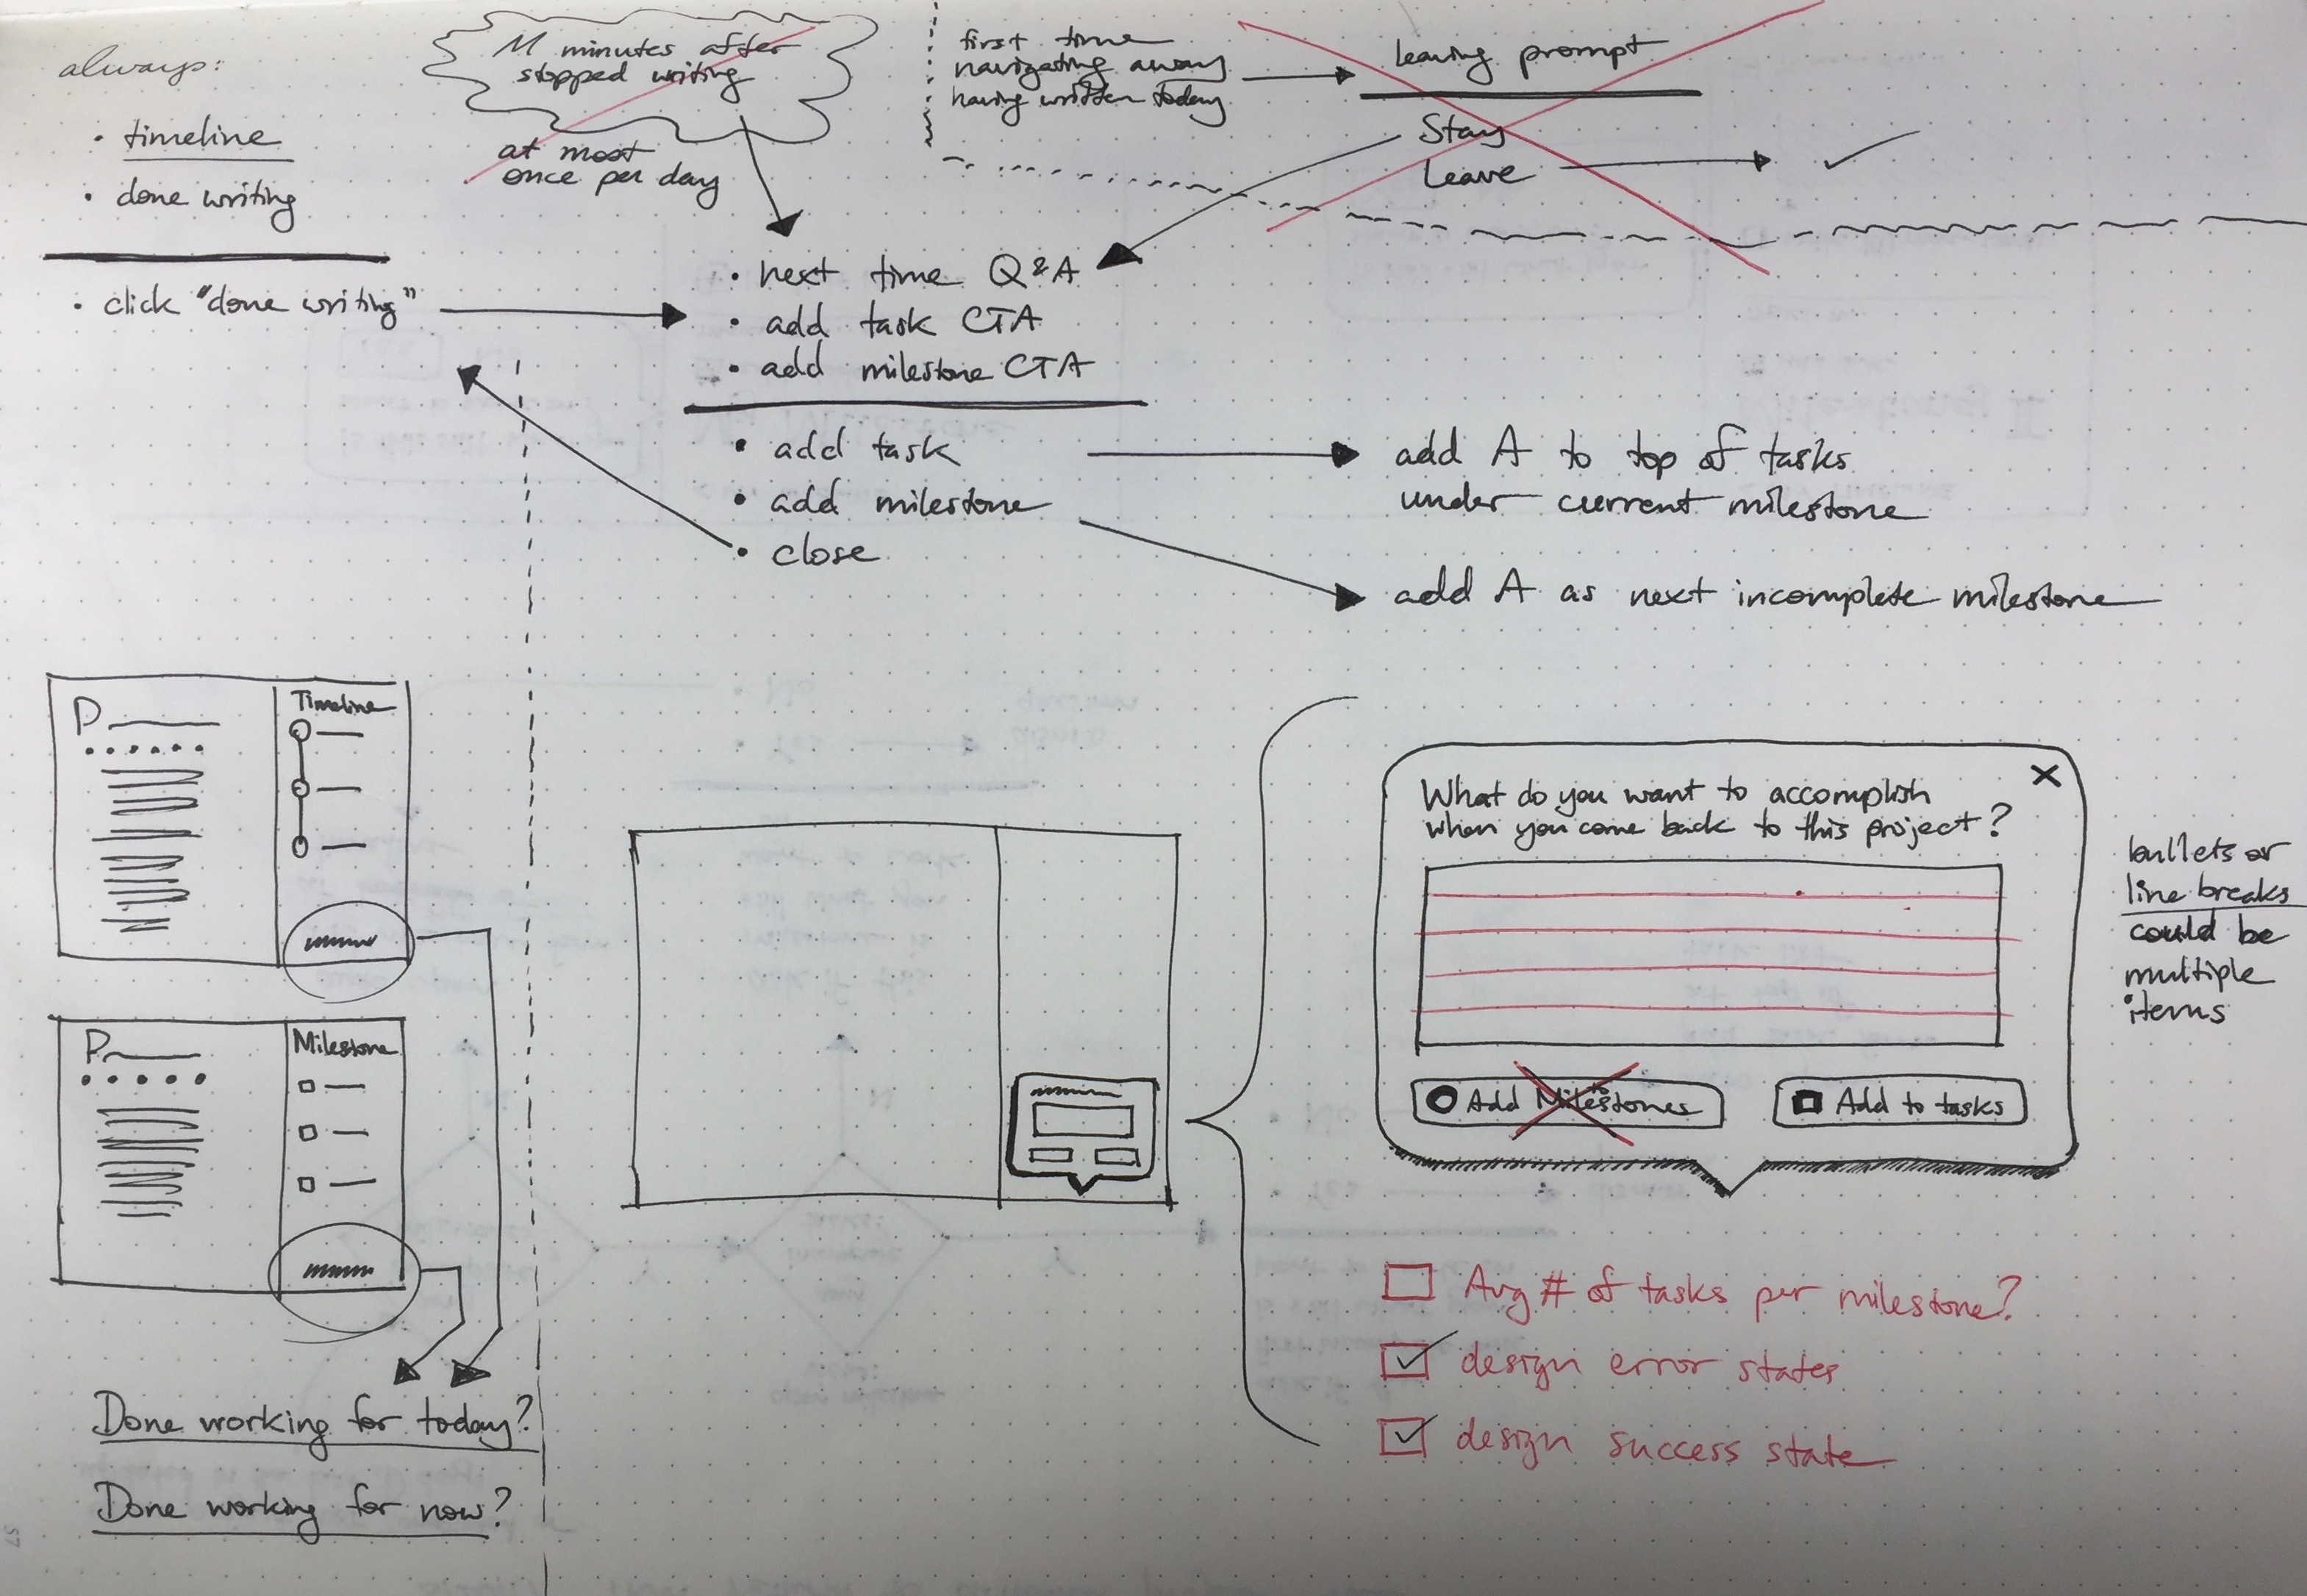 always:
• timeline
• done writing
• click "done writing"
M minutes after
stopped writing
at most
once per day
first time
navigating away
having written today
leaving prompt
Stay
Leave
• next time Q&A
• add task CTA
• add milestone CTA
• add task
• add milestone
• close
add A to top of tasks
under current milestone
add A as next incomplete milestone
P
Timeline
P
Milestone
Done working for today?
Done working for now?
What do you want to accomplish
when you come back to this project?
X
Add to Milestones
Add to tasks
bullets or
line breaks
could be
multiple
items
Avg # of tasks per milestone?
design error states
design success state